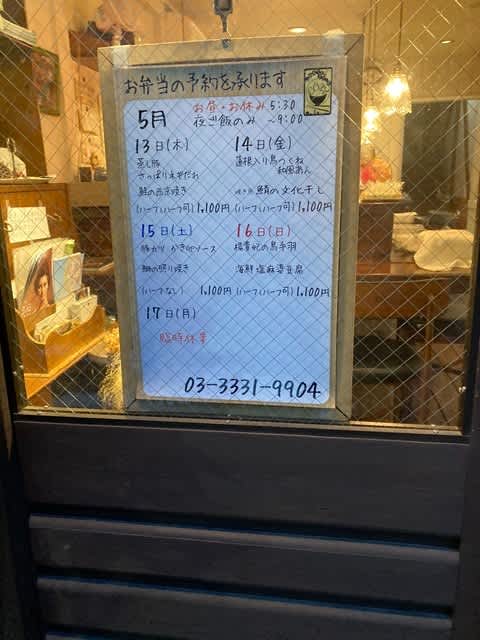 お弁当の予約を承ります
5月
お昼・お休み 5:30
夜ご飯のみ ~9:00
13日(木)
蒸し豚
さっぱりネギだれ
鮭の西京焼き
(ハーフ&ハーフ可) 1,100円
14日(金)
蓮根入り鳥つくね
和風あん
鯖の文化干し
(ハーフ&ハーフ可) 1,100円
15日(土)
豚カツ かきソース
鰤の照り焼き
(ハーフなし) 1,100円
16日(日)
楊貴妃の鳥手羽
海鮮塩麻婆豆腐
(ハーフ&ハーフ可) 1,100円
17日(月)
臨時休業
03-3331-9904